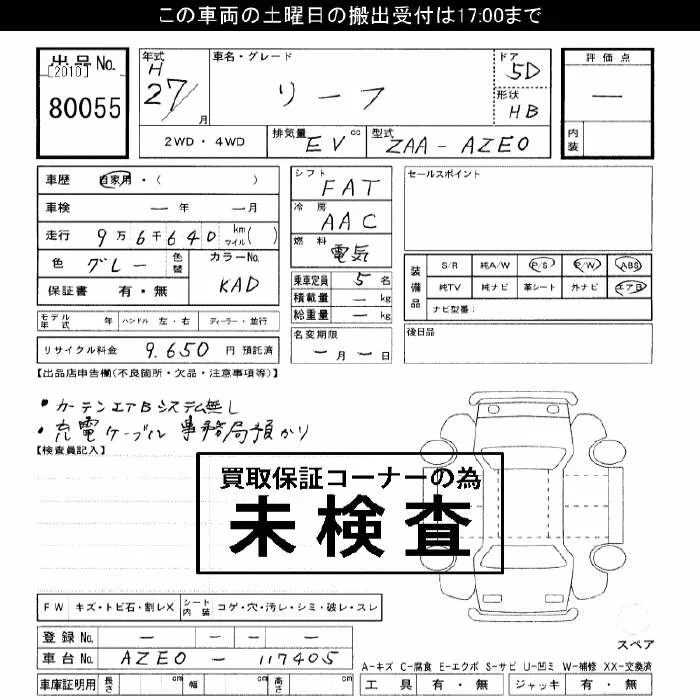 この車両の土曜日の搬出受付は17:00まで
出品No. [2010] 80055
年式 H 27 / 月
車名・グレード リーフ
ドア 5D
形状 HB
評価点 —
内装
2WD・4WD 排気量 EV cc 型式 ZAA-AZE0
車歴 自家用・( )
車検 — 年 — 月
走行 9万6千640 km マイル( )
色 グレー 色替 カラーNo. KAD
保証書 有・無
シフト FAT
冷房 AAC
燃料 電気
乗車定員 5名
積載量 — kg
総重量 — kg
セールスポイント
装備品 S/R 純A/W P/S P/W ABS
純TV 純ナビ 革シート 外ナビ エアB
ナビ型番:
モデル年式 年 ハンドル 左・右 ディーラー・並行
名変期限 — 月 — 日
後日品
リサイクル料金 9,650 円 預託済
【出品店申告欄(不良箇所・欠品・注意事項等)】
・カーテンエアBシステム無し
・充電ケーブル 事務局預かり
【検査員記入】
買取保証コーナーの為
未検査
FW キズ・トビ石・割レX シート内装 コゲ・穴・汚レ・シミ・破レ・スレ
登録No. — —
車台No. AZE0 - 117405
車庫証明用 長さ cm 幅 cm 高さ cm
スペア
A-キズ C-腐食 E-エクボ S-サビ U-凹ミ W-補修 XX-交換済
工具 有・無 ジャッキ 有・無